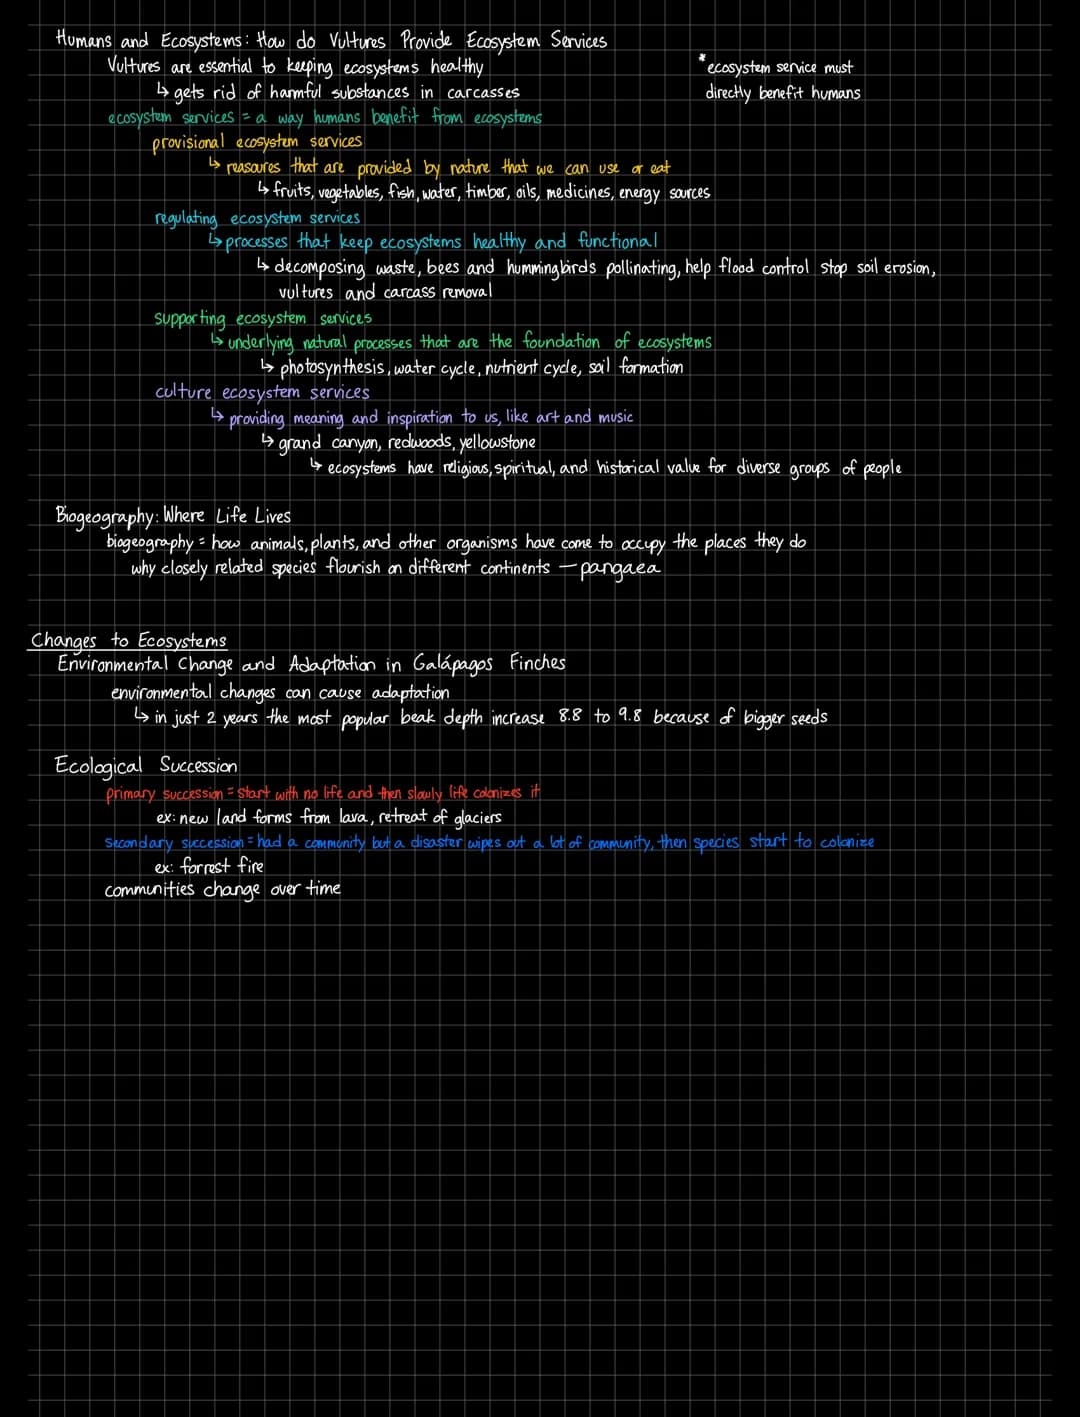 Humans and Ecosystems: How do Vultures Provide Ecosystem Services
Vultures are essential to keeping ecosystems healthy
↳ gets rid of harmful substances in carcasses
*ecosystem service must
directly benefit humans
ecosystem services = a way humans benefit from ecosystems
provisional ecosystem services
↳ reasoures that are provided by nature that we can use or eat
↳ fruits, vegetables, fish, water, timber, oils, medicines, energy sources
regulating ecosystem services
↳ processes that keep ecosystems healthy and functional
↳ decomposing waste, bees and hummingbirds pollinating, help flood control stop soil erosion,
vultures and carcass removal
supporting ecosystem services
↳ underlying natural processes that are the foundation of ecosystems
↳ photosynthesis, water cycle, nutrient cycle, soil formation
culture ecosystem services
↳ providing meaning and inspiration to us, like art and music
↳ grand canyon, redwoods, yellowstone
↳ ecosystems have religious, spiritual, and historical value for diverse groups of people
Biogeography: Where Life Lives
biogeography = how animals, plants, and other organisms have come to occupy the places they do
why closely related species flourish on different continents — pangaea
Changes to Ecosystems
Environmental Change and Adaptation in Galápagos Finches
environmental changes can cause adaptation
↳ in just 2 years the most popular beak depth increase 8.8 to 9.8 because of bigger seeds
Ecological Succession
primary succession = start with no life and then slowly life colonizes it
ex: new land forms from lava, retreat of glaciers
secondary succession = had a community but a disaster wipes out a lot of community, then species start to colonize
ex: forrest fire
communities change over time